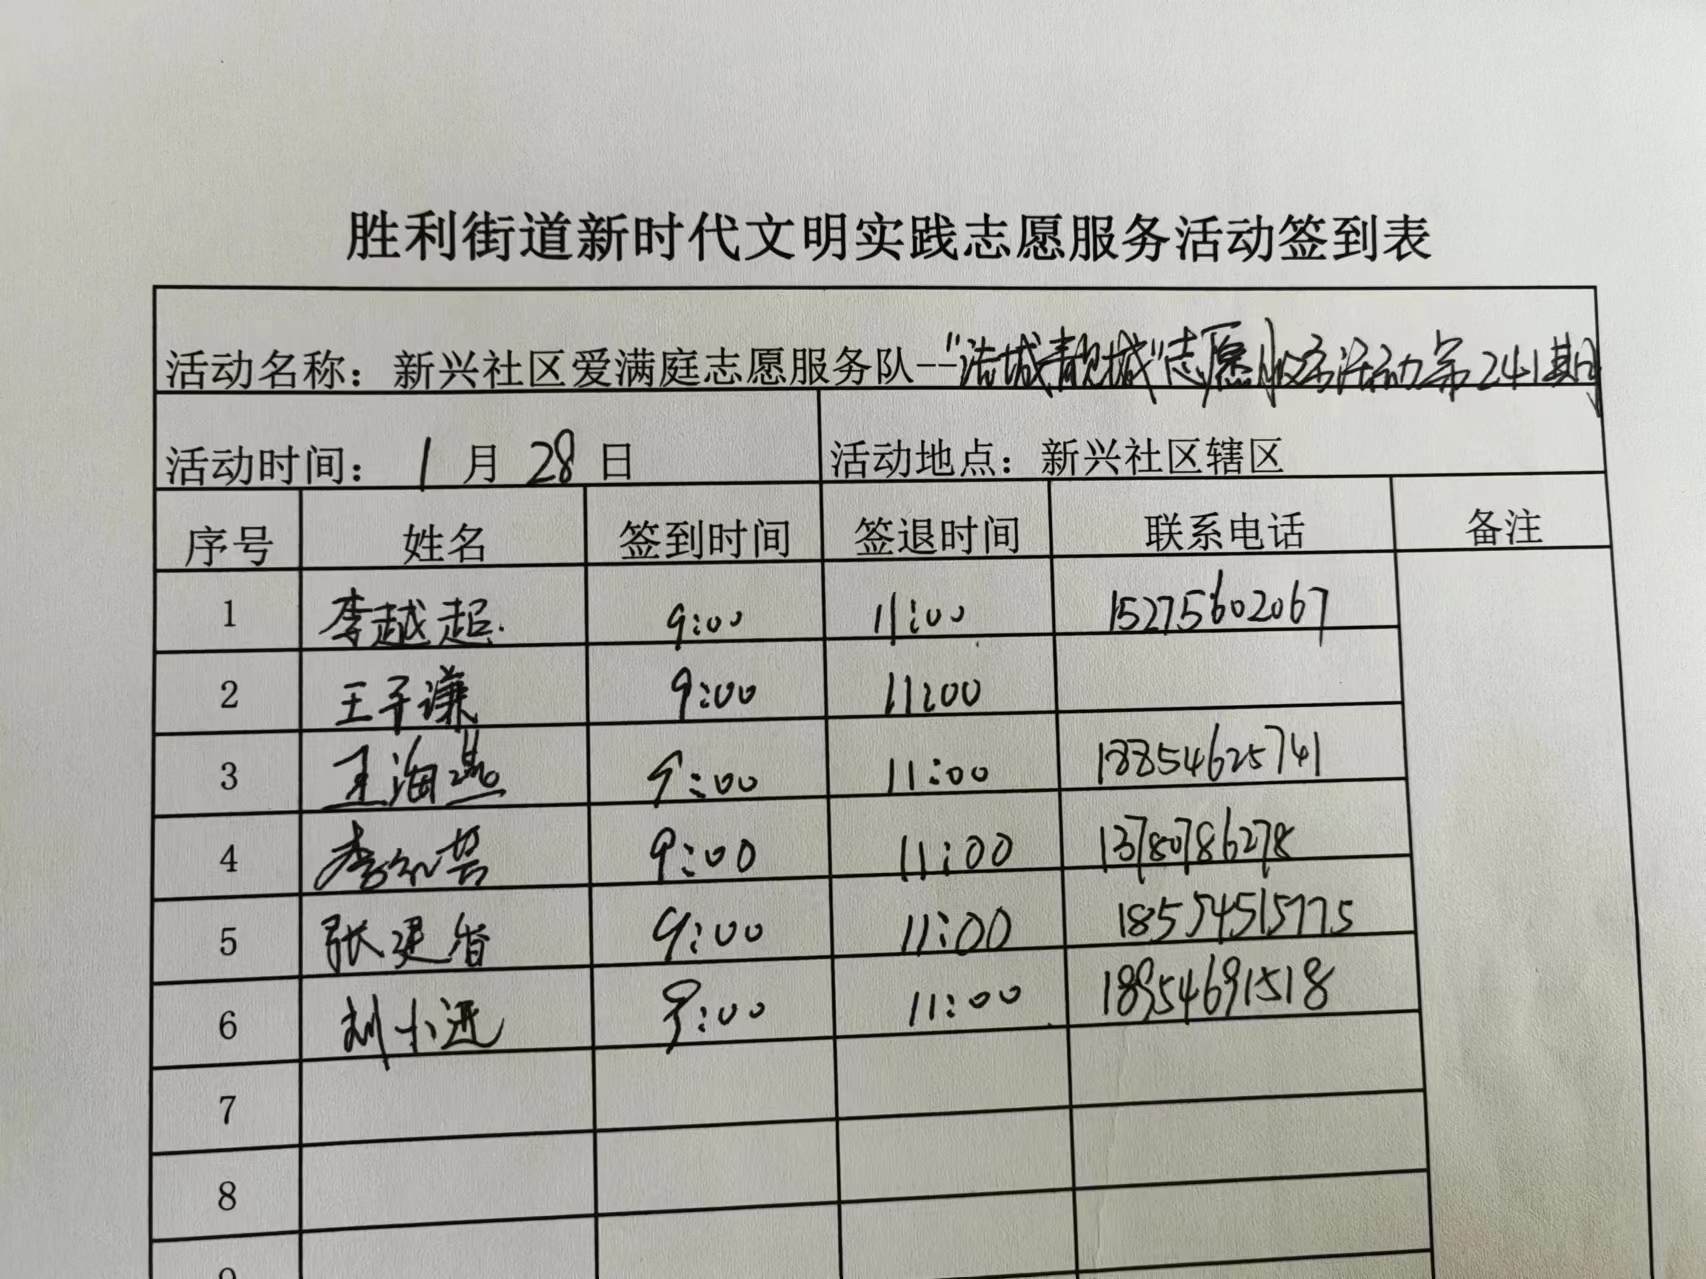 胜利街道新时代文明实践志愿服务活动签到表
活动名称：新兴社区爱满庭志愿服务队--"洁城靓城"志愿服务活动第241期
活动时间： 1 月 28 日 活动地点：新兴社区辖区
序号 姓名 签到时间 签退时间 联系电话 备注
1 李越超 9:00 11:00 15275602067
2 王子谦 9:00 11:00
3 王海燕 9:00 11:00 18854625741
4 9:00 11:00 13780786278
5 张建省 9:00 11:00 18554515775
6 刘小进 9:00 11:00 18954691518
7
8
9